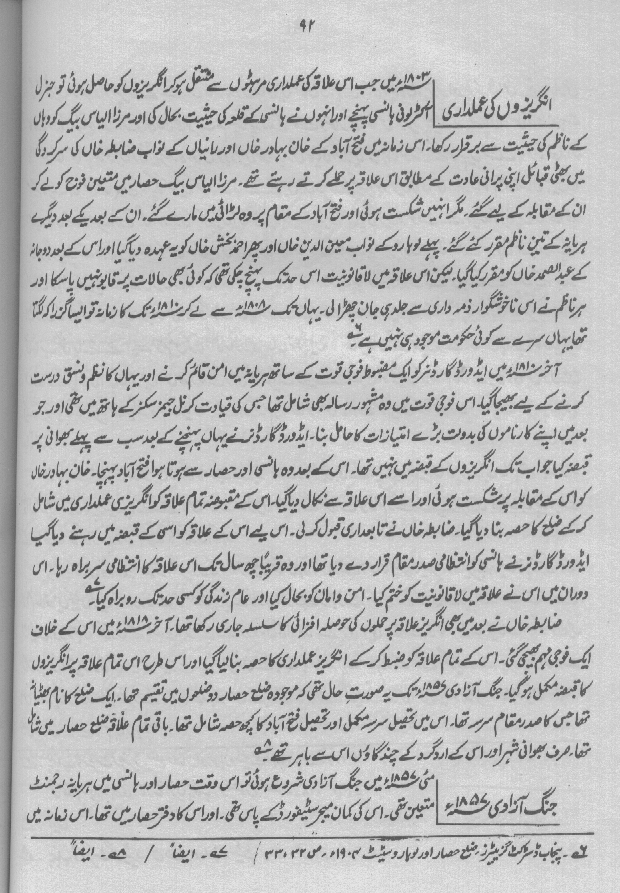 ۹۲
انگریزوں کی عملداری
۱۸۰۳ء میں جب اس علاقہ کی عملداری مرہٹوں سے منتقل ہو کر انگریزوں کو حاصل ہوئی تو جنرل
اکٹرلونی ہانسی پہنچے اور انہوں نے ہانسی کے قلعہ کی حیثیت بحال کی اور مرزا الیاس بیگ کو وہاں
کے ناظم کی حیثیت سے برقرار رکھا۔ اس زمانہ میں فتح آباد کے خان بہادر خاں اور رانیاں کے نواب ضابطہ خاں کی سرکردگی
میں بھٹی قبائل اپنی پرانی عادت کے مطابق اس علاقہ پر حملے کرتے رہتے تھے۔ مرزا الیاس بیگ حصار میں متعین فوج کو لے کر
ان کے مقابلہ کے لیے گئے۔ مگر انہیں شکست ہوئی اور فتح آباد کے مقام پر وہ لڑائی میں مارے گئے۔ ان کے بعد یکے بعد دیگرے
ہریانہ کے تین ناظم مقرر کئے گئے۔ پہلے لوہارو کے نواب معین الدین خاں اور پھر احمد بخش خاں کو یہ عہدہ دیا گیا اور اس کے بعد دوجانہ
کے عبدالصمد خاں کو مقرر کیا گیا۔ لیکن اس علاقہ میں لاقانونیت اس حد تک پہنچ چکی تھی کہ کوئی بھی حالات پر قابو نہیں پا سکا اور
ہر ناظم نے اس ناخوشگوار ذمہ داری سے جلد ہی جان چھڑا لی۔ یہاں تک ۱۸۰۸ء سے لے کر ۱۸۱۰ء تک کا زمانہ تو ایسا گزرا کہ لگتا
تھا یہاں سرے سے کوئی حکومت موجود ہی نہیں ہے۔ ۶
آخر ۱۸۱۰ء میں ایڈورڈ گارڈنر کو ایک مضبوط فوجی قوت کے ساتھ ہریانہ میں امن قائم کرنے اور یہاں کا نظم و نسق درست
کرنے کے لیے بھیجا گیا۔ اس فوجی قوت میں وہ مشہور رسالہ بھی شامل تھا جس کی قیادت کرنل جیمز سکنر کے ہاتھ میں تھی اور جو
بعد میں اپنے کارناموں کی بدولت بڑے امتیازات کا حامل بنا۔ ایڈورڈ گارڈنر نے یہاں پہنچنے کے بعد سب سے پہلے بھوانی پر
قبضہ کیا جو اب تک انگریزوں کے قبضہ میں نہیں تھا۔ اس کے بعد وہ ہانسی اور حصار سے ہوتا ہوا فتح آباد پہنچا۔ خان بہادر خاں
کو اس کے مقابلہ پر شکست ہوئی اور اسے اس علاقہ سے نکال دیا گیا۔ اس کے مقبوضہ تمام علاقہ کو انگریزی عملداری میں شامل
کر کے ضلع کا حصہ بنا دیا گیا۔ ضابطہ خاں نے تابعداری قبول کر لی۔ اس لیے اس کے علاقہ کو اسی کے قبضہ میں رہنے دیا گیا
ایڈورڈ گارڈنر نے ہانسی کو انتظامی صدر مقام قرار دے دیا تھا اور وہ قریباً چھ سال تک اس علاقہ کا انتظامی سربراہ رہا۔ اس
دوران میں اس نے علاقہ میں لاقانونیت کو ختم کیا۔ امن و امان کو بحال کیا اور عام زندگی کو کسی حد تک رو براہ کیا۔ ۷
ضابطہ خاں نے بعد میں بھی انگریز علاقہ پر حملوں کی حوصلہ افزائی کا سلسلہ جاری رکھا تھا۔ آخر ۱۸۱۸ء میں اس کے خلاف
ایک فوجی مہم بھیجی گئی۔ اس کے تمام علاقہ کو ضبط کر کے انگریز عملداری کا حصہ بنا لیا گیا اور اس طرح اس تمام علاقہ پر انگریزوں
کا قبضہ مکمل ہو گیا۔ جنگ آزادی ۱۸۵۷ء تک یہ صورت حال تھی کہ موجودہ ضلع حصار دو ضلعوں میں تقسیم تھا۔ ایک ضلع کا نام بھٹیانہ
تھا جس کا صدر مقام سرسہ تھا۔ اس میں تحصیل سرسہ مکمل اور تحصیل فتح آباد کا کچھ حصہ شامل تھا۔ باقی تمام علاقہ ضلع حصار میں شامل
تھا۔ صرف بھوانی شہر اور اس کے ارد گرد کے چند گاؤں اس سے باہر تھے۔ ۸
جنگ آزادی ۱۸۵۷ء
مئی ۱۸۵۷ء میں جنگ آزادی شروع ہوئی تو اس وقت حصار اور ہانسی میں ہریانہ رجمنٹ
متعین تھی۔ اس کی کمان میجر سٹیفورڈ کے پاس تھی۔ اور اس کا دفتر حصار میں تھا۔ اس زمانہ میں
۶۔ پنجاب ڈسٹرکٹ گزیٹیرز۔ ضلع حصار اور لوہارو سٹیٹ ۱۹۰۴ء، ص ۳۲، ۳۳ / ۷۔ ایضاً / ۸۔ ایضاً